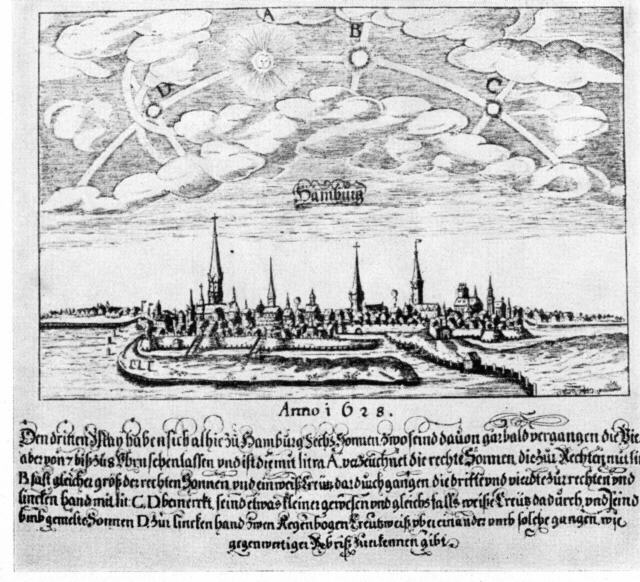 A
B
C
D
Hamburg
Anno 1628.
Den dritten May haben sich alhie zu Hamburg Sechs Sonnen, zwo seind dauon gar bald vergangen die Vier
aber von 7 biß zu 8 Uhrn sehen lassen und ist die mit litra A. verzeuchnet die rechte Sonnen, die zur Rechten mit lit
B fast gleicher größ der rechten Sonnen, und ein weiß Creutz dardurch gangen die dritte und vierdte zur rechten und
lincken hand mit lit. C. D bemerckt, seind etwas kleiner gewesen und gleichs falls weiße Creutz dadurch, und seind
umb gemelte Sonnen D. zur lincken hand zwen Regenbogen Creutzweiß vber einander vmb solche gangen, wie
gegenwertiger Abriß zuerkennen gibt.